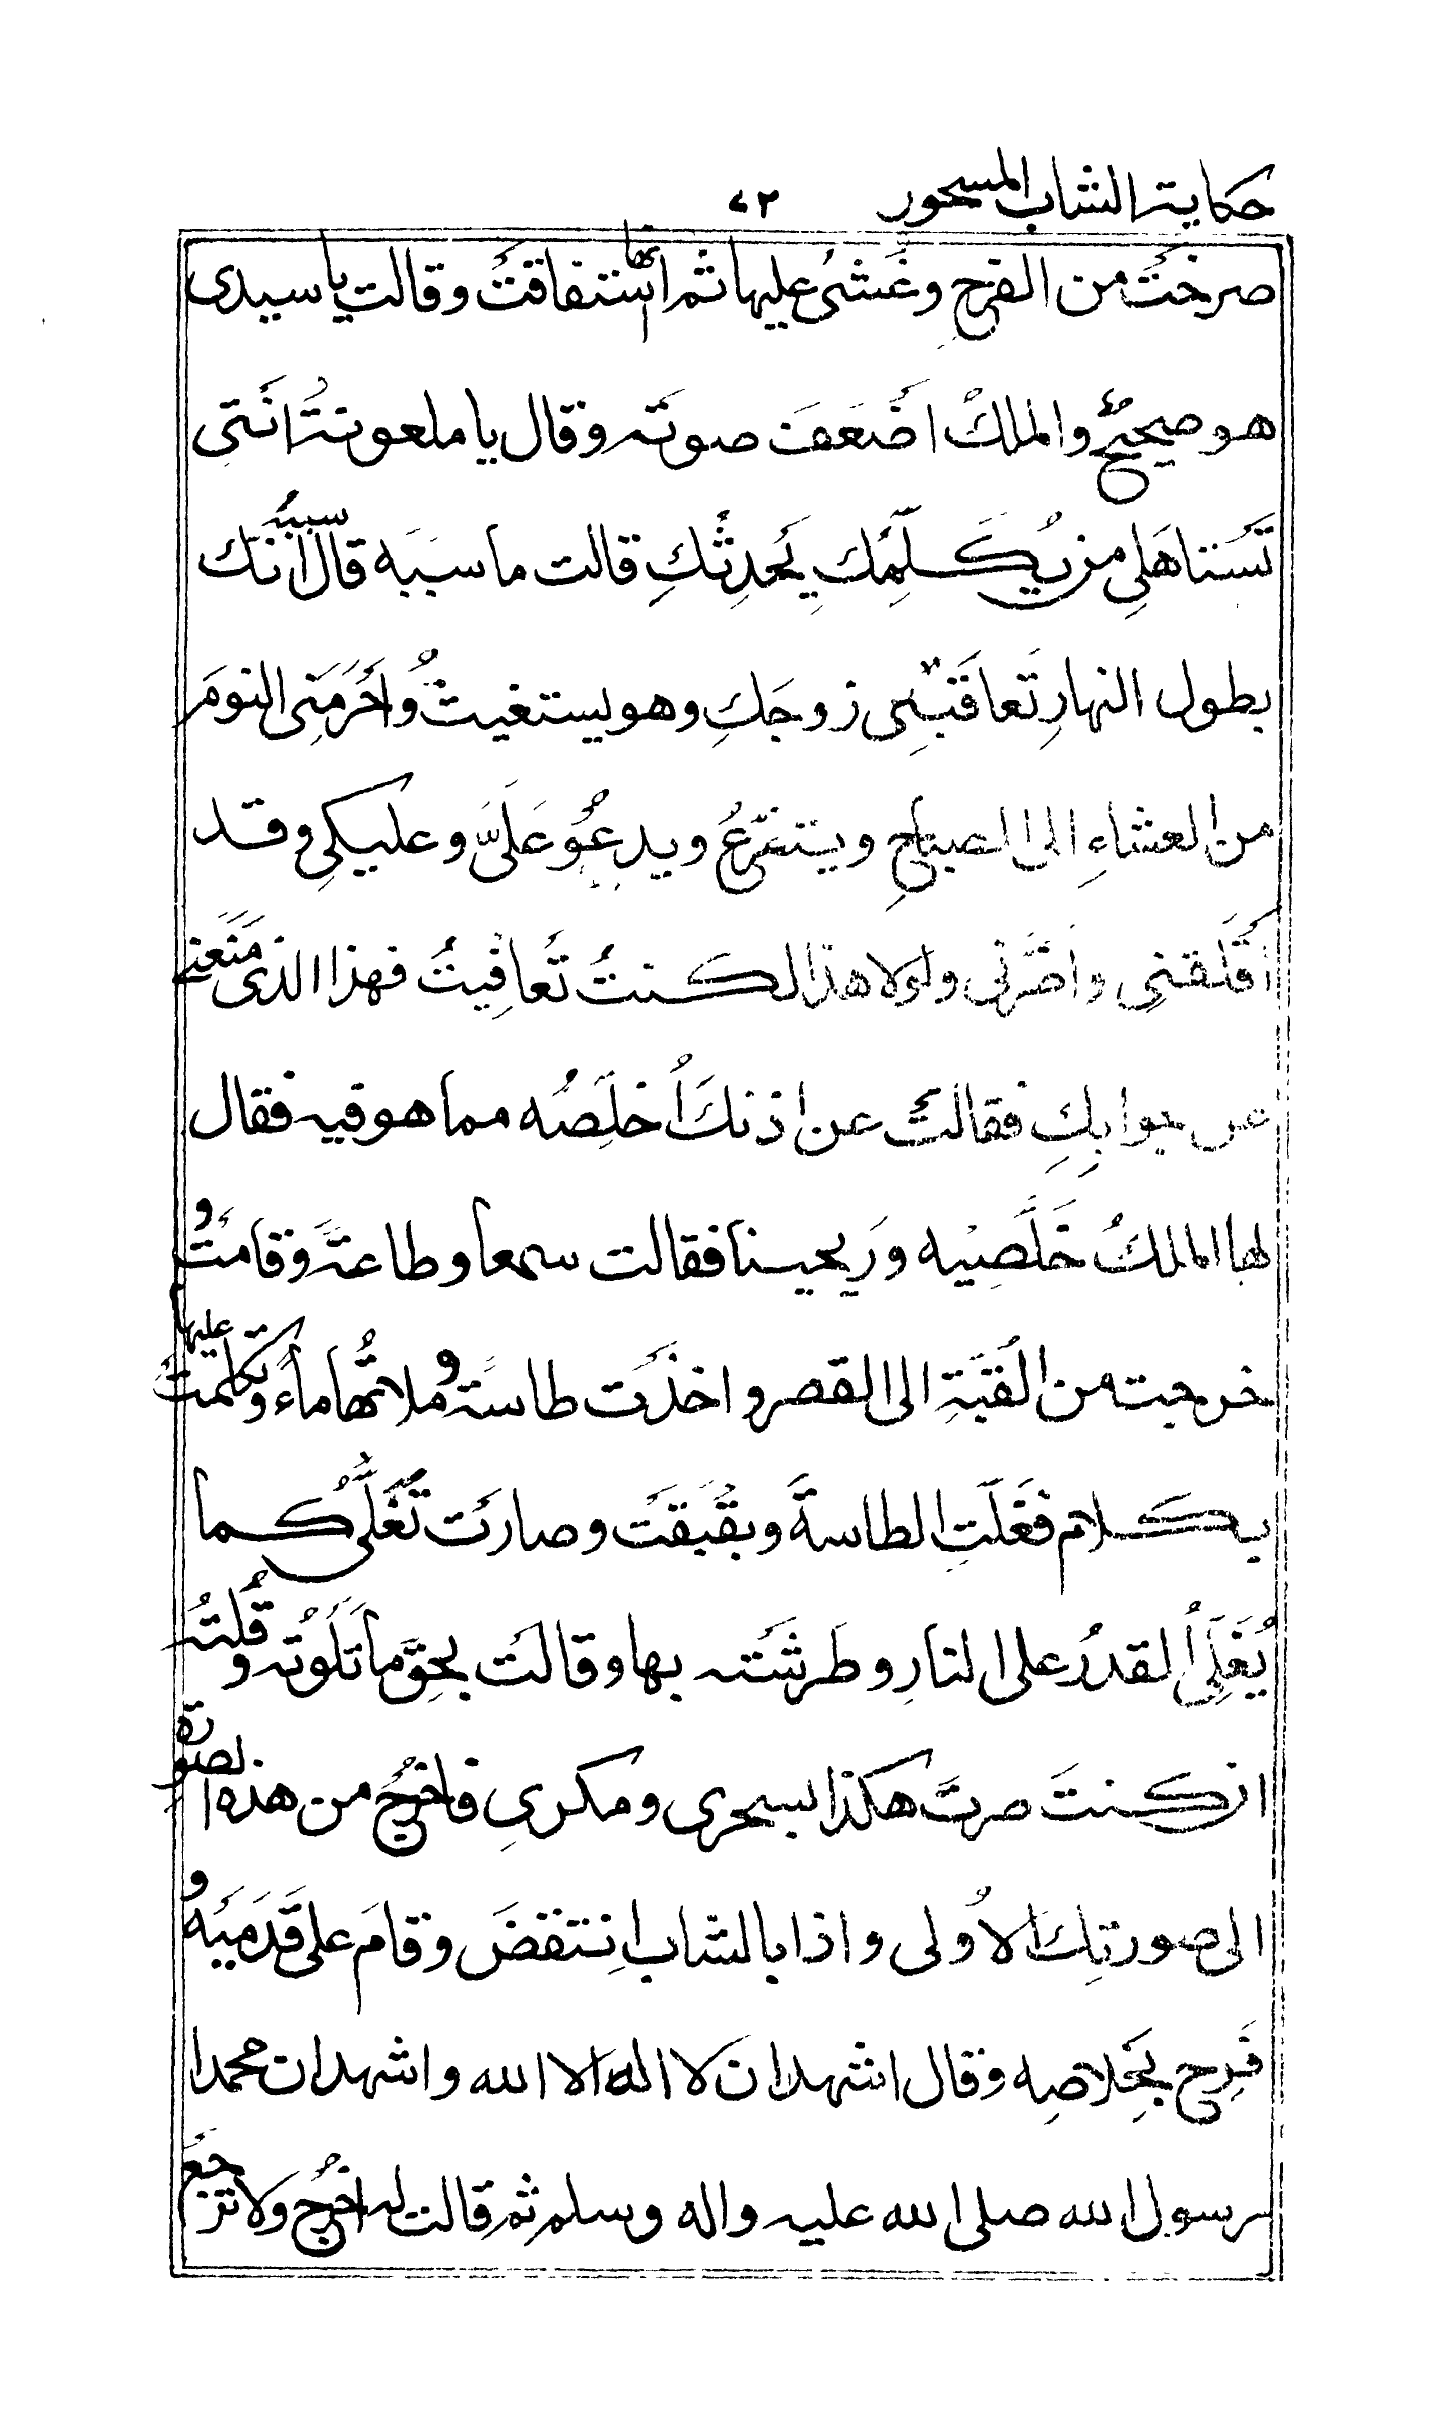 حكاية الشاب المسحور ٧٢
صرختُ من الفرحِ وغَشىُ عليها ثم انها استفاقتْ وقالت يا سيدى
هو صحيحٌ والملكْ اضعَفَ صوتَه وقال يا ملعونةُ انَتىِ
تَستاهَلىِ من يُكَلِّمُكِ يُحدِثُكِ قالت ما سبَبَه قال سببُه انك
بطول النهارِ تَعاقَبىِ زوجَكِ وهو يستغيثُ واَحْرَمَنِى النومَ
من العشاءِ الى الصباحِ ويتضرّعُ ويدعُو عَلىَّ وعليكىِ وقد
اَقْلَقنِى واَضَرَّنى ولولا هذا لكنتُ تَعافِيتُ فهذا الذى مَنَعَنى
عن جوابِكِ فقالتْ عن اذنكَ اُخلِّصُه مما هو فيه فقال
لها الملكُ خَلَّصِيْه وَريحينا فقالت سمعا وطاعةً وقامتْ و
خرجت من القبّةِ الى القصر واخذَت طاسةً وملاتُها ماءً وتكلمتْ عليها
بكلام فغَلَتِ الطاسةُ وبقْبَقَتْ وصارَت تَغلّى كما
يُغَلِى القدرُ على النارِ وطَرشَته بها وقالتْ بحقِّ ما تَلَوتُه وقُلتُه
ان كنتَ صرتَ هكذا بسحرى ومكرىِ فاخرُج من هذه الصورة
الى صورتِكَ الاُولى واذا بالشاب اِنتفضَ وقامَ على قَدَمَيْه و
فَرِح بخَلاصِه وقال اشهد ان لا اله الا الله واشهد ان محمدا
رسول الله صلى الله عليه واله وسلم ثم قالت له اخرُج ولا ترجعْ